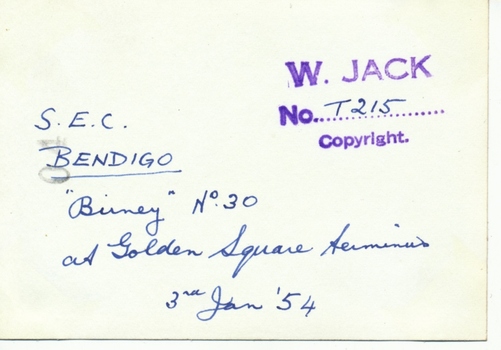 W. JACK
No. T215
Copyright.
S.E.C.
BENDIGO
"Birney" No. 30
at Golden Square terminus
3rd Jan '54